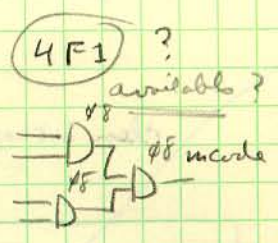 4F1 ?
available ?
φ8
φ8 mcode
φ8